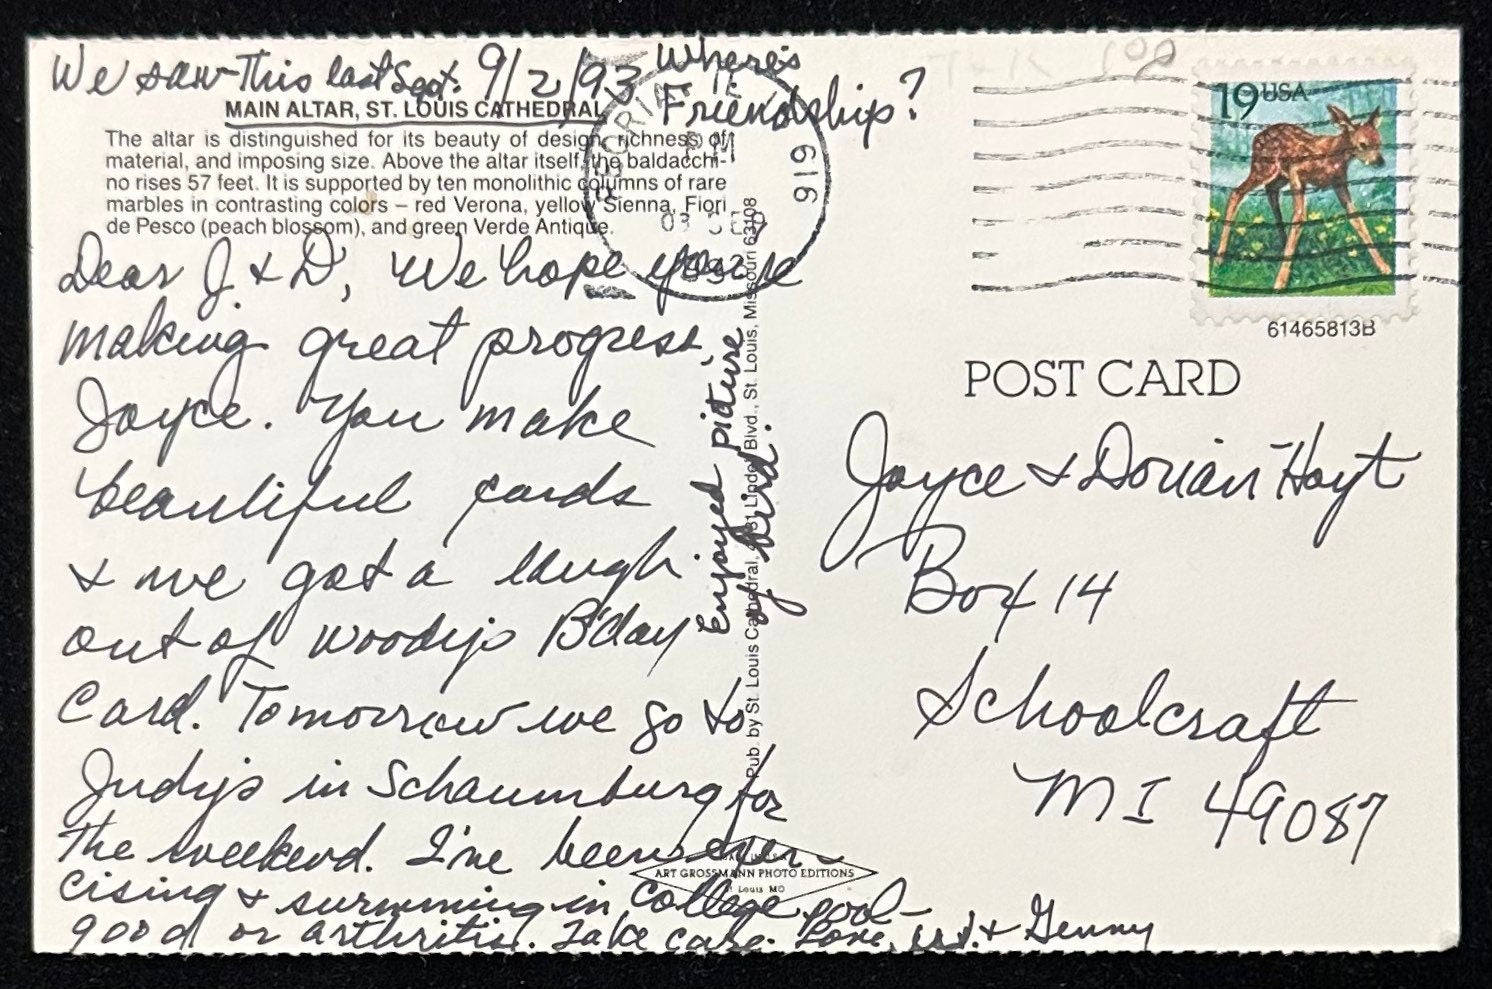 We saw This last Sept. 9/2/93 Where's
Friendship?
MAIN ALTAR, ST. LOUIS CATHEDRAL
The altar is distinguished for its beauty of design, richness of
material, and imposing size. Above the altar itself, the baldacchi-
no rises 57 feet. It is supported by ten monolithic columns of rare
marbles in contrasting colors – red Verona, yellow Sienna, Fiori
de Pesco (peach blossom), and green Verde Antique.
Dear J. & D, We hope you're
making great progress,
Joyce. You make
beautiful cards
& we got a laugh
out of Woody's B'day
Card. Tomorrow we go to
Judy's in Schaumburg for
the weekend. I've been exer-
cising & swimming in college pool –
good or arthritis. Take care. Love, & Genny
Enjoyed picture
of bird.
Pub. by St. Louis Cathedral, 4431 Lindell Blvd., St. Louis, Missouri 63108
ART GROSSMANN PHOTO EDITIONS
St Louis MO
PEORIA, IL
616
PM
03 SEP
19 USA
61465813B
POST CARD
Joyce & Dorian Hoyt
Box 14
Schoolcraft
MI 49087